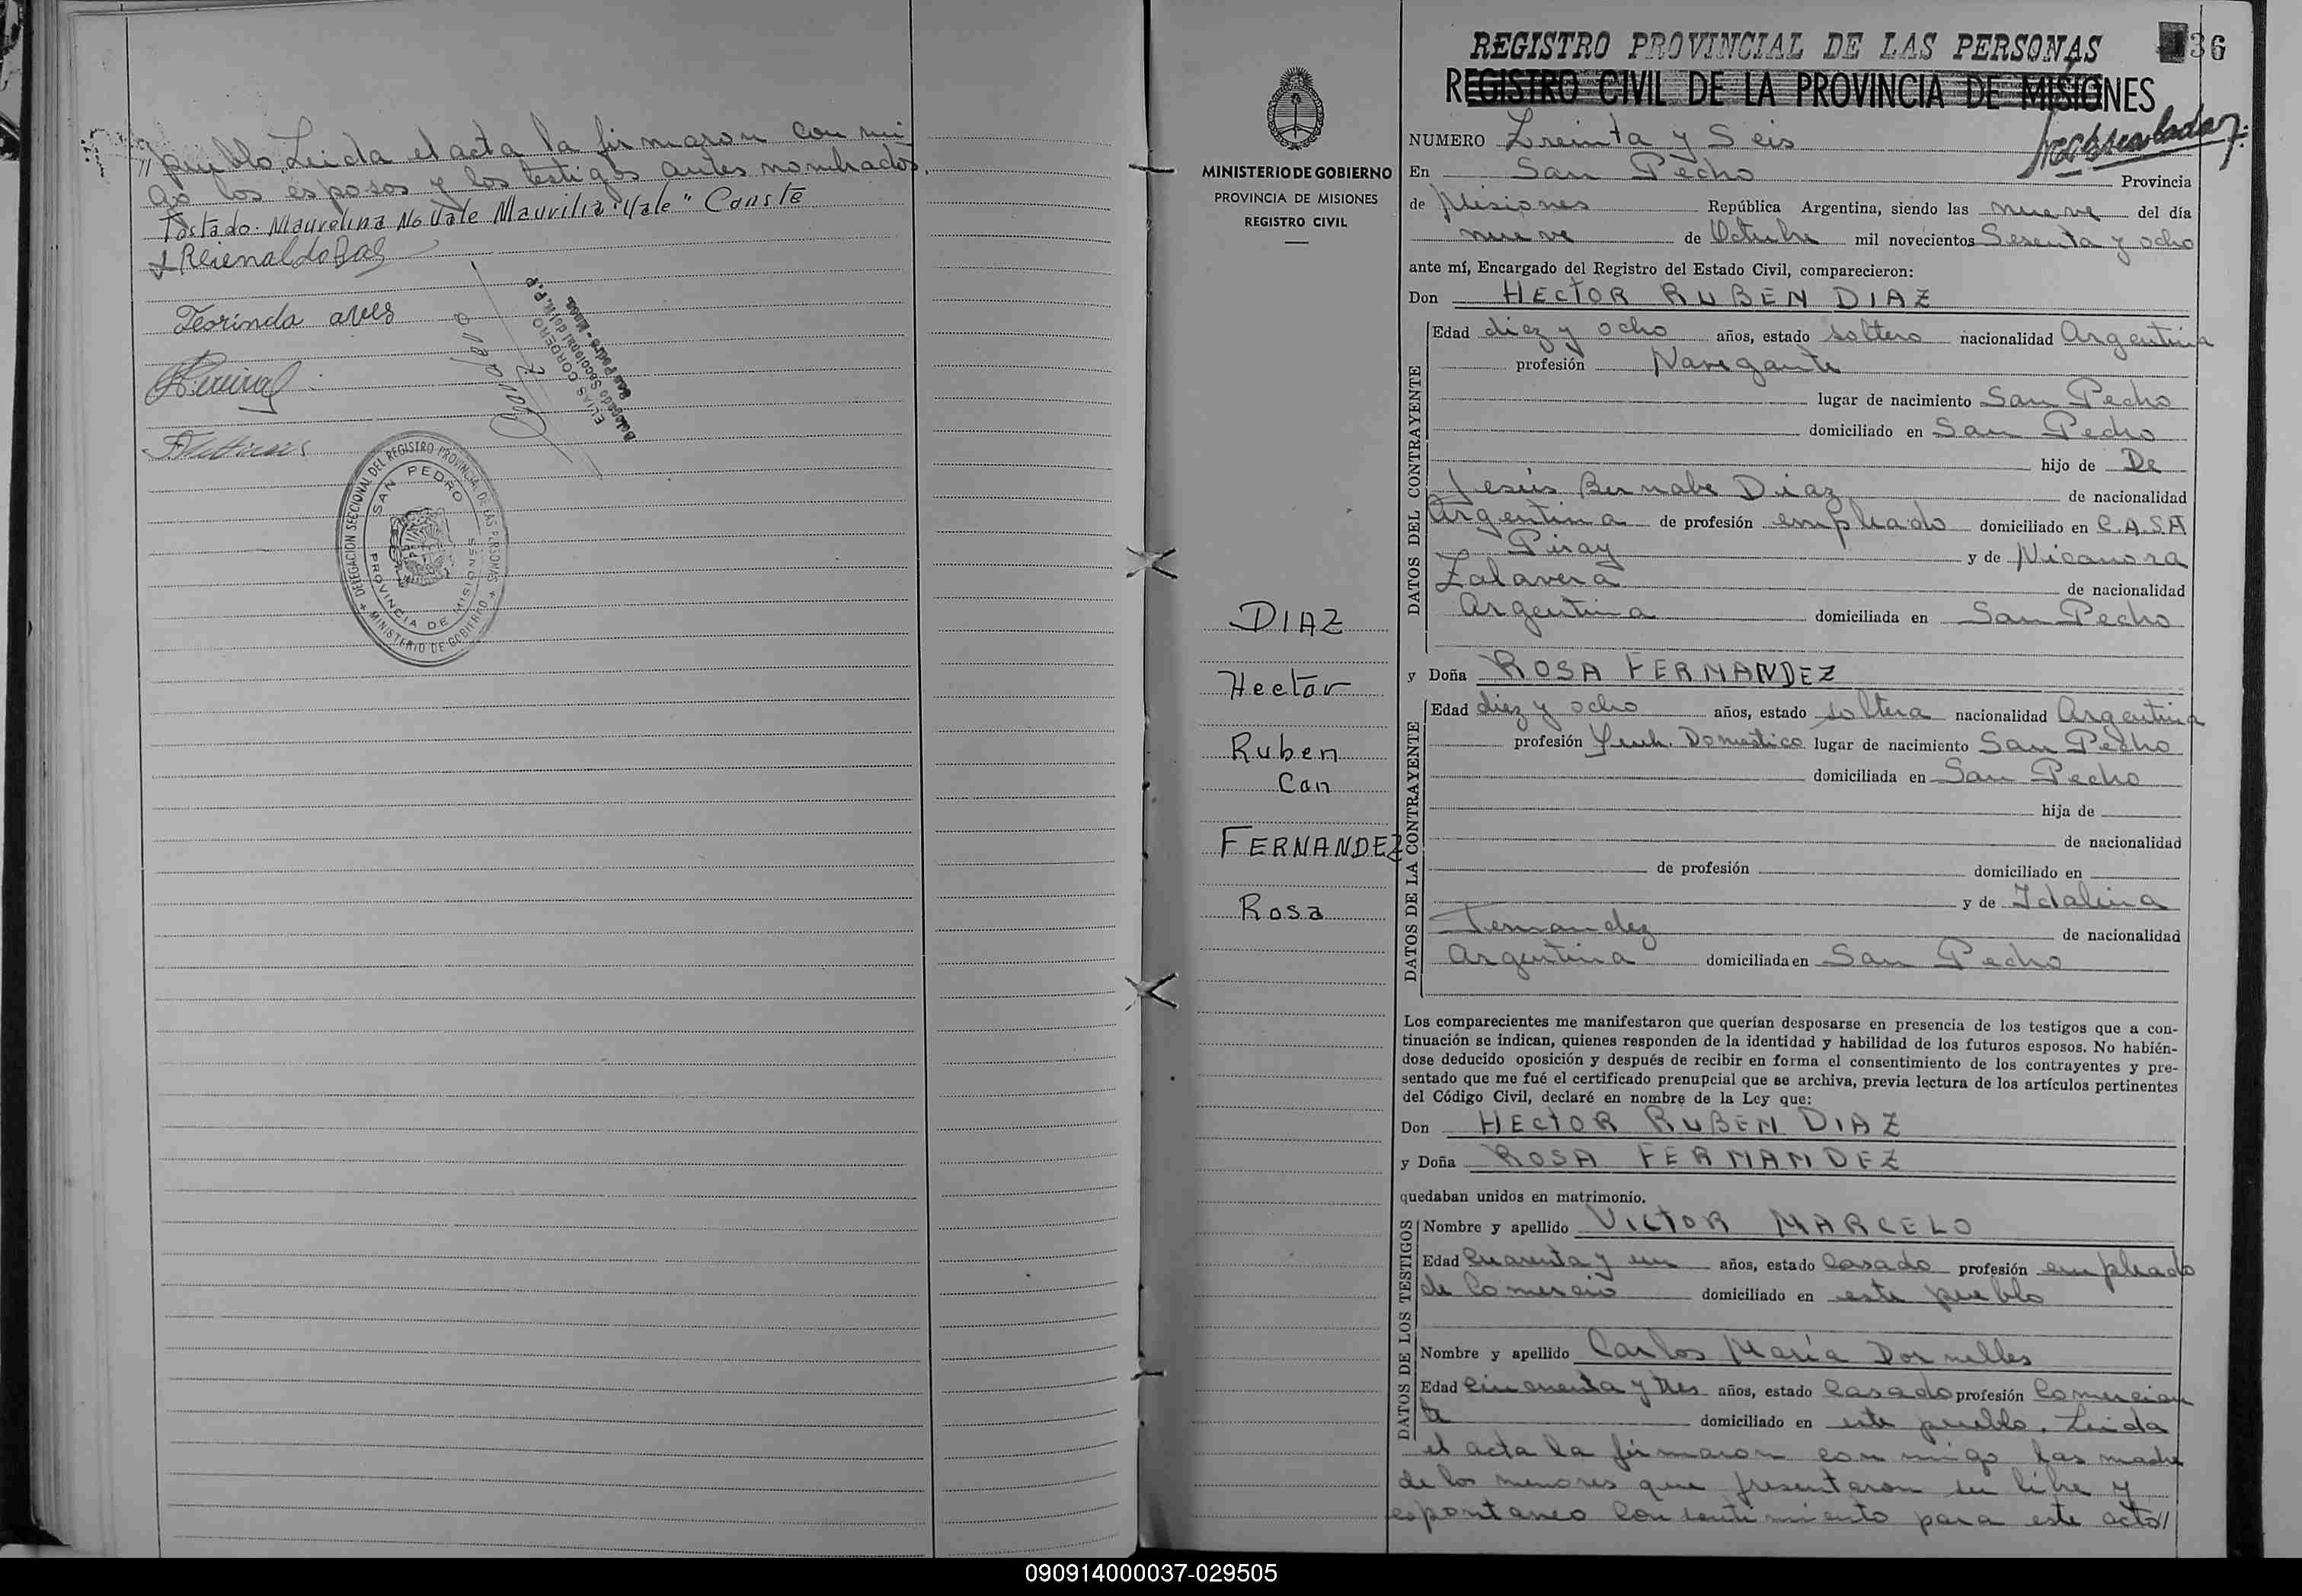 // pueblo. Leida el acta la firmaron con mi
go los esposos y los testigos antes nombrados.
Tostado. Maurelina No Vale Maurilia "Vale" Conste
Teorinda
ELIAS CORDERO
Delegado Seccional del R. P. P.
San Pedro - Mnes.
+ DELEGACION SECCIONAL DEL REGISTRO PROVINCIAL DE LAS PERSONAS +
MINISTERIO DE GOBIERNO
SAN PEDRO
PROVINCIA DE MISIONES
MINISTERIO DE GOBIERNO
PROVINCIA DE MISIONES
REGISTRO CIVIL
DIAZ
Hector
Ruben
Con
FERNANDEZ
Rosa
36
REGISTRO PROVINCIAL DE LAS PERSONAS
REGISTRO CIVIL DE LA PROVINCIA DE MISIONES
NUMERO Treinta y Seis
En San Pedro Provincia
de Misiones República Argentina, siendo las nueve del día
nueve de Octubre mil novecientos Sesenta y ocho
ante mí, Encargado del Registro del Estado Civil, comparecieron:
Don HECTOR RUBEN DIAZ
DATOS DEL CONTRAYENTE
Edad diez y ocho años, estado soltero nacionalidad Argentina
profesión Navegante
lugar de nacimiento San Pedro
domiciliado en San Pedro
hijo de De
Jesús Bernabe Diaz de nacionalidad
Argentina de profesión empleado domiciliado en C.A.S.A
Piray y de Nicanora
Talavera de nacionalidad
Argentina domiciliada en San Pedro
y Doña ROSA FERNANDEZ
DATOS DE LA CONTRAYENTE
Edad diez y ocho años, estado soltera nacionalidad Argentina
profesión Domestico lugar de nacimiento San Pedro
domiciliada en San Pedro
hija de
de nacionalidad
de profesión domiciliado en
y de Idalina
Fernandez de nacionalidad
Argentina domiciliada en San Pedro
Los comparecientes me manifestaron que querían desposarse en presencia de los testigos que a con-
tinuación se indican, quienes responden de la identidad y habilidad de los futuros esposos. No habién-
dose deducido oposición y después de recibir en forma el consentimiento de los contrayentes y pre-
sentado que me fué el certificado prenupcial que se archiva, previa lectura de los artículos pertinentes
del Código Civil, declaré en nombre de la Ley que:
Don HECTOR RUBEN DIAZ
y Doña ROSA FERNANDEZ
quedaban unidos en matrimonio.
DATOS DE LOS TESTIGOS
Nombre y apellido VICTOR MARCELO
Edad Cuarenta y un años, estado Casado profesión empleado
de Comercio domiciliado en este pueblo
Nombre y apellido Carlos María Dornelles
Edad Cincuenta y tres años, estado Casado profesión Comercian
te domiciliado en este pueblo. Leida
el acta la firmaron con migo las madre
de los menores que presentaron su libre y
espontaneo Consentimiento para este acto//
090914000037-029505